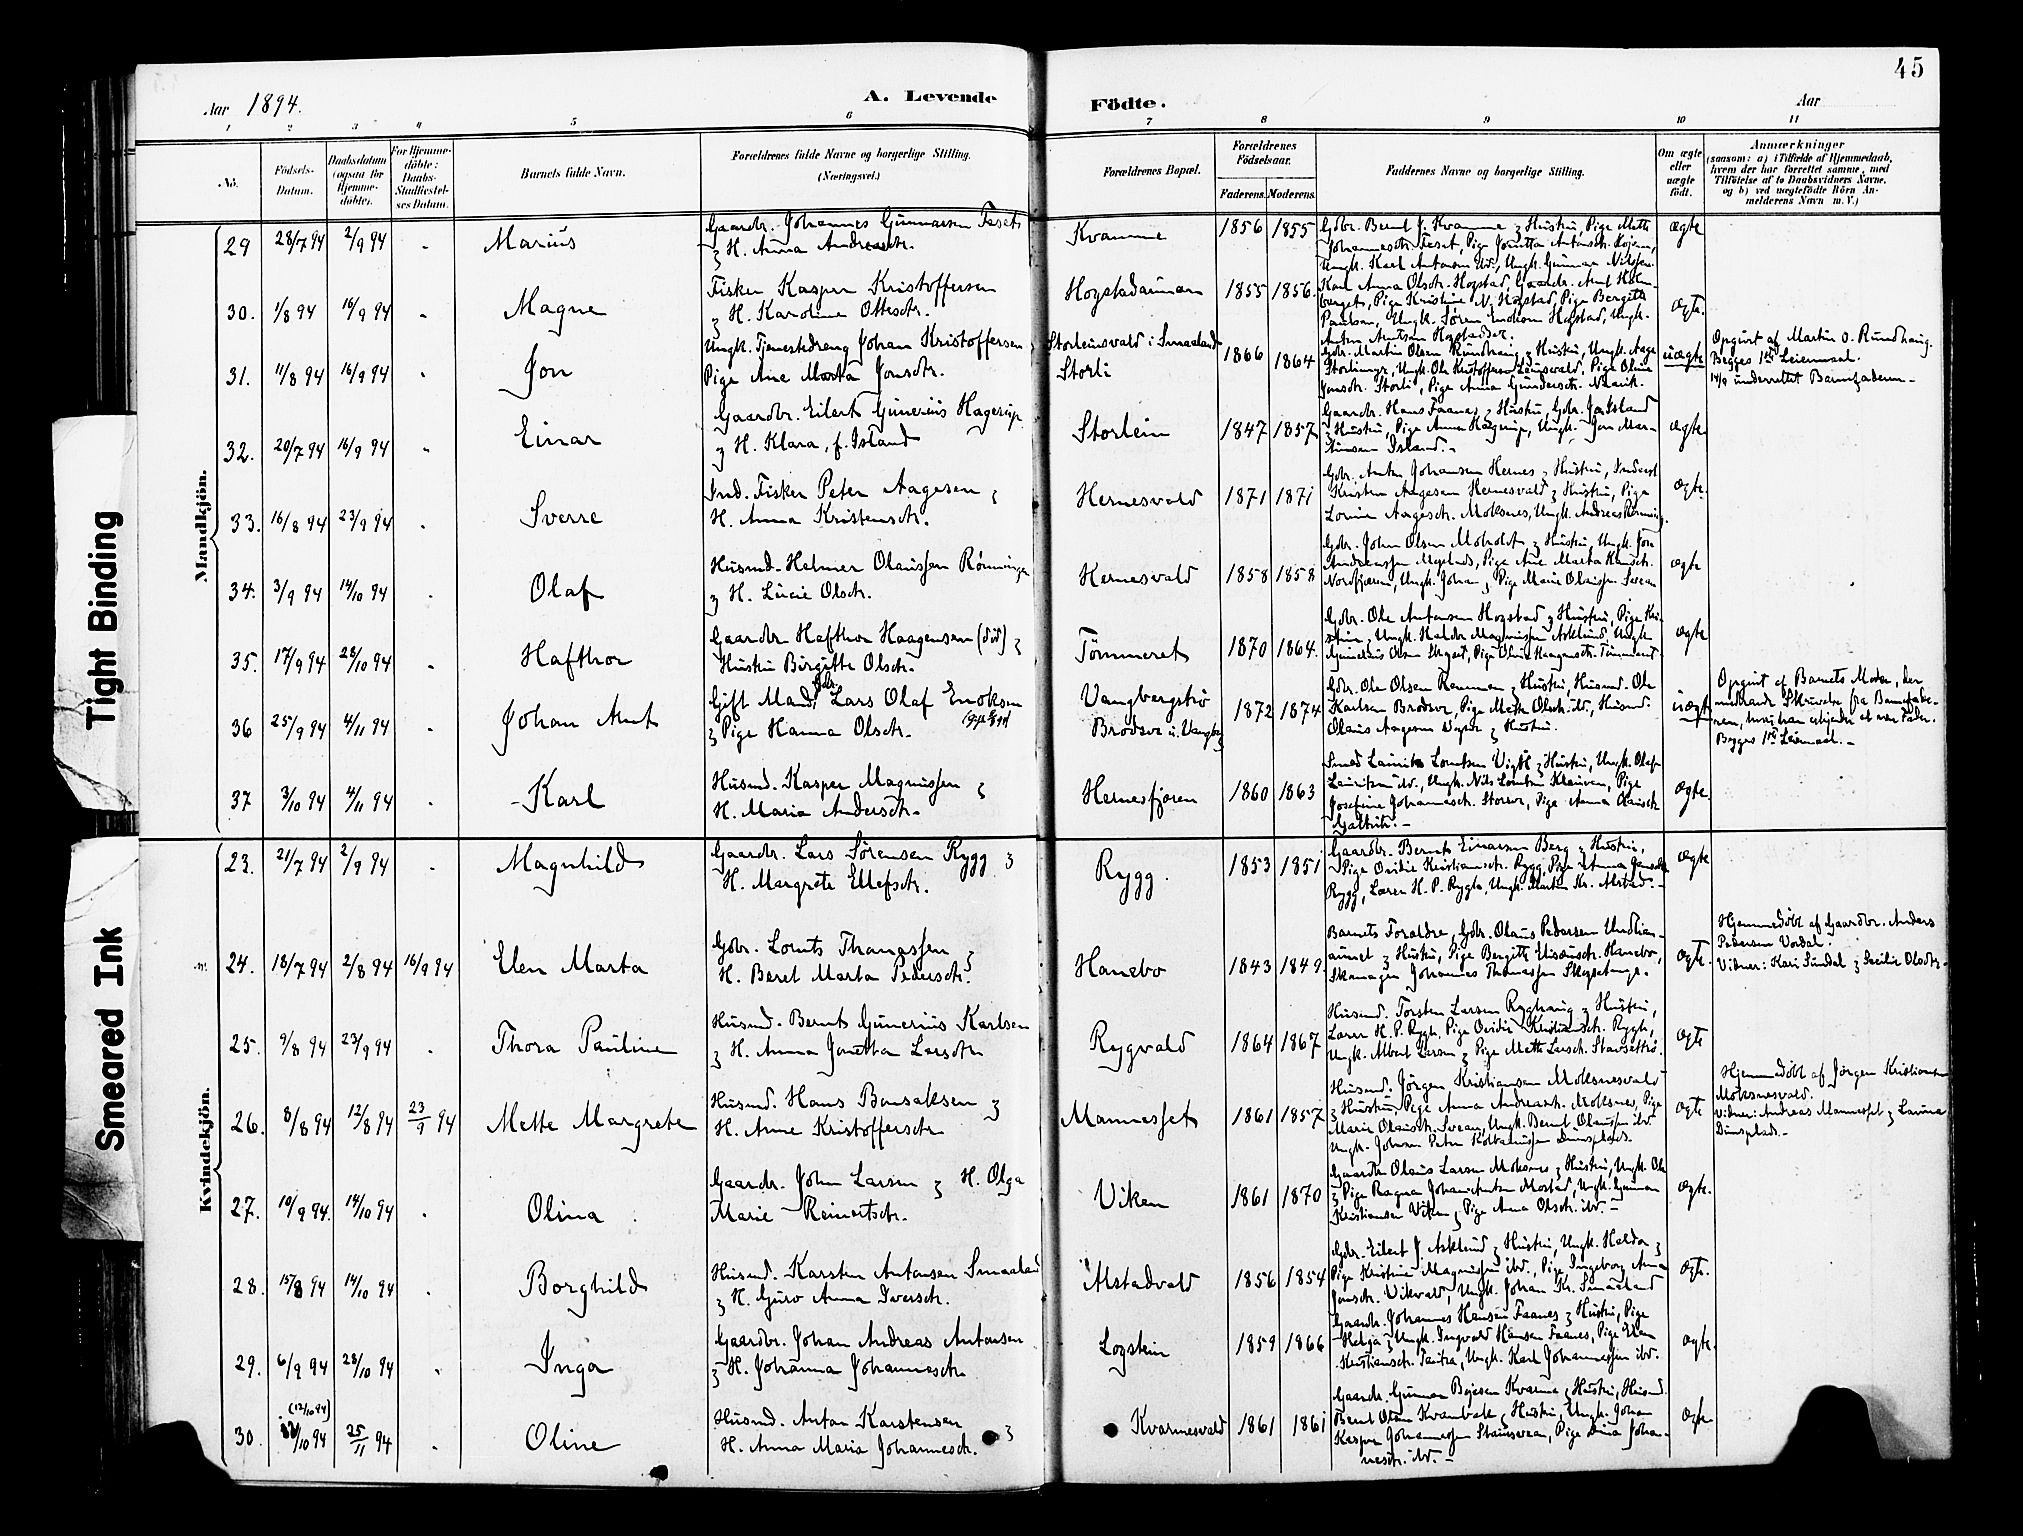 45
Aar 1894.
A. Levende
Födte.
Aar
1 2 3 4 5 6 7 8 9 10 11
No.
Födsels-Datum.
Daabsdatum (ogsaa för Hjemme-döbte).
For Hjemme-döbte: Daabs-Stadfæstel-ses Datum.
Barnets fulde Navn.
Forældrenes fulde Navne og borgerlige Stilling.
(Næringsvei.)
Forældrenes Bopæl.
Forældrenes Födselsaar.
Faderens. Moderens.
Faddernes Navne og borgerlige Stilling.
Om ægte eller uægte födt.
Anmærkninger
(saasom: a) i Tilfælde af Hjemmedaab, hvem der har forrettet samme, med Tilföielse af to Daabsvidners Navne, og b) ved uægtefödte Börn An-melderens Navn m. V.)
Mandkjön.
29 28/7 94 2/9 94 - Marius
Gaardbr. Johannes Gunnarsen Teset
& H. Anna Andreasdtr.
Kvamme 1856 1855
Gdbr. Bernt J. Kvamme & Hustru, Pige Mette
Johannesdtr. Teset, Pige Jonetta Antonsdtr.
Ungk. Karl Antonsen ibd., Ungk. Gunnar Nilssen.
ægte
30. 1/8 94 16/9 94 - Magne
Fisker Kasper Kristoffersen
& H. Karoline Ottesdtr.
Hogstadaunan 1855 1856.
Kone Anna Olsdtr. Hogstad, Gaardbr. Arnt Holm-
berget, Pige Kristine N. Hogstad, Pige Bergitte
Paulsen, Ungk. Søren Enoksen Hogstad, Ungk.
ægte.
31. 11/8 94 16/9 94 - Jon
Ungk. Tjenestedreng Johan Kristoffersen
Pige Ane Marta Jonsdtr.
Storleinsvald i Smaaland
Storli
1866 1864
Gdbr. Martin Olsen Rundhaug & Hustru, Ungk. Aage
Storlimyr, Ungk. Ole Kristoffersen Leinsvald, Pige Oline
Jonsdtr. Storli, Pige Anna Gundersdtr.
uægte
Opgivet af Martin O. Rundhaug.
Begges 1ste Leiermaal.
14/9 underrettet Barnefaderen -
32. 20/7 94 16/9 94 - Einar
Gaardbr. Eilert Gunerius Hagerup
& H. Klara, f. Island
Storlein 1847 1857
Gaardbr. Hans Faanes & Hustru, Gdbr. Jo Island
& Hustru, Pige Anna Hagerup, Ungk. Jon Mar-
tinsen Island. -
ægte
33. 16/8 94 23/9 94 - Sverre
Ind. Fisker Peter Aagesen &
H. Anna Kristensdtr.
Hernesvald 1871 1871
Gdbr. Anton Johansen Hernes & Hustru, Inderst
Kristen Aagesen Hernesvald & Hustru, Pige
Lovise Aagesdtr. Moksnes, Ungk. Andreas Rønning.
ægte.
34. 3/9 94 14/10 94 - Olaf
Husmd. Helmer Olaussen Rønningen
& H. Lucie Olsdtr.
Hernesvald 1858 1858
Gdbr. John Olsen Moholdt & Hustru, Ungk. Jon
Andreassen Myglads, Pige Ane Marta Hansdtr.
Nordfjæren, Ungk. Johan & Pige Marie Olaussen Svean
ægte
35. 17/9 94 28/10 94 - Hafthor
Gaardbr. Hafthor Haagensen (død) &
Hustru Birgitte Olsdtr.
Tømmeret 1870 1864.
Gdbr. Ole Antonsen Hogstad & Hustru, Pige Kri-
stine & Ungk. Haldor Magnussen Asklund, Ungk.
Gunerius Olsen, Pige Oline Haagensdtr. Tømmeret
ægte
36 25/9 94 4/11 94 Johan Arnt
Gift Mand, Gdbr. Lars Olaf Enoksen
& Pige Hanna Olsdtr.
Vangbergstrø
Brodsve u. Vangberg
1872 1874
Gdbr. Ole Olsen Remmen & Hustru, Husmd. Ole
Karlsen Brodsve, Pige Mette Olsdtr. ibd., Husmd.
Olaus Aagesen & Hustru.
uægte
Opgivet af Barnets Moder, der
medbragte Skrivelse fra Barnefade-
ren, hvori han erkjender at være Fader.
Begges 1ste Leiermaal. -
37 3/10 94 4/11 94 - Karl
Husmd. Kasper Magnussen &
H. Maria Andersdtr.
Hernesfjæren 1860 1863
Smed Laurits Lorntsen Vigtil & Hustru, Ungk. Olaf
Lauritsen ibd., Ungk. Nils Lorntsen Kleiven, Pige
Josefine Johannesdtr. Storvoe, Pige Anna Olausdtr.
ægte.
Kvindekjön.
23. 21/7 94 2/9 94 - Magnhild
Gaardbr. Lars Sørensen Rygg &
H. Margrete Ellefsdtr.
Rygg. 1853 1851
Gaardbr. Bernt Einarsen Berg & Hustru,
Pige Ovidie Kristiansdtr. Rygg, Pige Anna
Rygg, Lærer H. P. Rygh, Ungk. Martin Kr. Alstad. -
ægte
24. 18/7 94 2/8 94 16/9 94 Elen Marta
Gdbr. Lornts Thomassen &
H. Beret Marta Pedersdtr.
Hanebo 1843 1849.
Barnets Forældre, Gdbr. Olaus Pedersen Undlian-
aunet & Hustru, Pige Bergitte Hanebo,
Skomager Johannes Thomassen
ægte.
Hjemmedøbt af Gaardbr. Anders
Pedersen Vordal.
Vidner: Kari Sundal & Cecilie Olsdtr.
25. 9/8 94 23/9 94 - Thora Pauline
Husmd. Bernt Gunerius Karlsen
& H. Anna Jonetta Larsdtr.
Rygvald 1864 1867
Husmd. Torsten Larsen Rygghaug & Hustru,
Lærer H. P. Rygh, Pige Ovidie Kristiansdtr. Rygh,
Ungk. Albert Larsen & Pige Mette Larsdtr. Stavsettrø.
ægte
26. 8/8 94 12/8 94 23/9 94 Mette Margrete
Husmd. Hans Bonsaksen &
H. Anne Kristoffersdtr.
Mannesset 1861 1857
Husmd. Jörgen Kristiansen Moksnesvald
& Hustru, Pige Anna Andreasdtr. Moksnes, Pige
Marie Olausdtr. Svean, Ungk. Bernt Olaussen ibd.
Ungk. Johan Peter
ægte
Hjemmedøbt af Jørgen Kristiansen
Moksnesvald.
Vidner: Andreas Mannesset & Lovise
27. 10/9 94. 14/10 94 - Olina
Gaardbr. John Larsen & H. Olga
Marie Reinertsdtr.
Viken 1861 1870
Gaardbr. Olaus Larsen Moksnes & Hustru, Ungk. Ole
& Pige Ragna Johan Mostad, Ungk. Gunnar
Kristiansen Viken & Pige Anna Olsdtr. ibd. -
ægte.
28. 15/8 94 14/10 94 - Borghild
Husmd. Karsten Antonsen Smaaland
& H. Guro Anna Iversdtr.
Alstadvald 1856 1854
Gdbr. Eilert J. Asklund & Hustru, Ungk. Haldor &
Pige Kristine Magnussen ibd., Pige Ingeborg Anna
Jonsdtr. Vikvald, Ungk. Johan Kr. Smaaland
ægte.
29. 6/9 94 28/10 94 - Inga
Gaardbr. Johan Andreas Antonsen
& H. Johanna Johannesdtr.
Logstein 1859 1866
Gaardbr. Johannes Hansen Faanes & Hustru, Pige
Helga & Ungk. Ingvald Hansen Faanes, Pige Elen
Kristiansdtr. Tautra, Ungk. Karl Johannessen ibd.
ægte.
30. (12/10 94) /10 94 25/11 94 - Oline
Husmd. Anton Karstensen &
H. Anna Maria Johannesdtr.
Kvarmesvald 1861 1861
Gaardbr. Gunnar Bojesen Kvarme & Hustru, Husmd.
Bernt Olsen Kvamvald & Hustru, Ungk. Johan
Kasper Johannessen, Pige Dina Johan-
nesdtr. ibd. -
ægte
Tight Binding
Smeared Ink